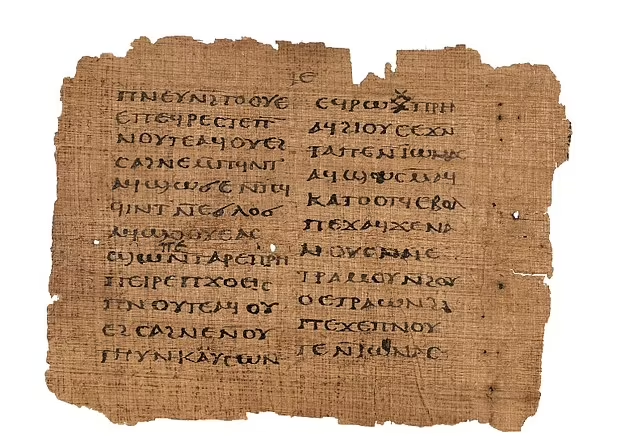 ⲓⲉ
ⲡⲛⲉⲩⲛϩⲧⲟⲟⲩⲉ
ⲉⲡⲉϥⲣⲉⲥⲧⲉⲡ
ⲛⲟⲩⲧⲉⲁϥⲟⲩⲉϩ
ⲥⲁϩⲛⲉⲙⲡϥⲛⲧ
ⲁϥϣⲱϭⲉⲛⲡϥ
ϥⲓⲛⲧⲛⲡⲉϭⲗⲟϭ
ⲁϥϣⲟⲟⲩⲉⲁⲥ
ϣⲱⲡⲉⲛⲧⲁⲣⲉⲡⲣⲏ
ⲡⲉⲓⲣⲉⲡϫⲟⲉⲓⲥ
ⲡⲛⲟⲩⲧⲉⲁϥⲟⲩ
ⲉϩⲥⲁϩⲛⲉⲛⲟⲩ
ⲡⲛⲩⲛⲕⲁⲩⲥⲱⲛ
ⲉϥⲣⲱⲭⲡⲣⲏ
ⲁϥϩⲓⲟⲩⲉⲉϫⲛ
ⲧⲁⲡⲉⲛⲓⲱⲛⲁⲥ
ⲁϥϣⲱⲥⲙⲁϥ
ⲕⲁⲧⲟⲟⲧϥⲉⲃⲟⲗ
ⲡⲉϫⲁϥϫⲉⲛⲁ
ⲛⲟⲩⲥⲛⲁⲓⲉ
ⲧⲣⲁⲙⲟⲩⲛϩⲟⲩ
ⲟⲉⲧⲣⲁⲱⲛϩ
ⲡⲉϫⲉⲡⲛⲟⲩ
ⲧⲉⲛⲓⲱⲛⲁⲥ